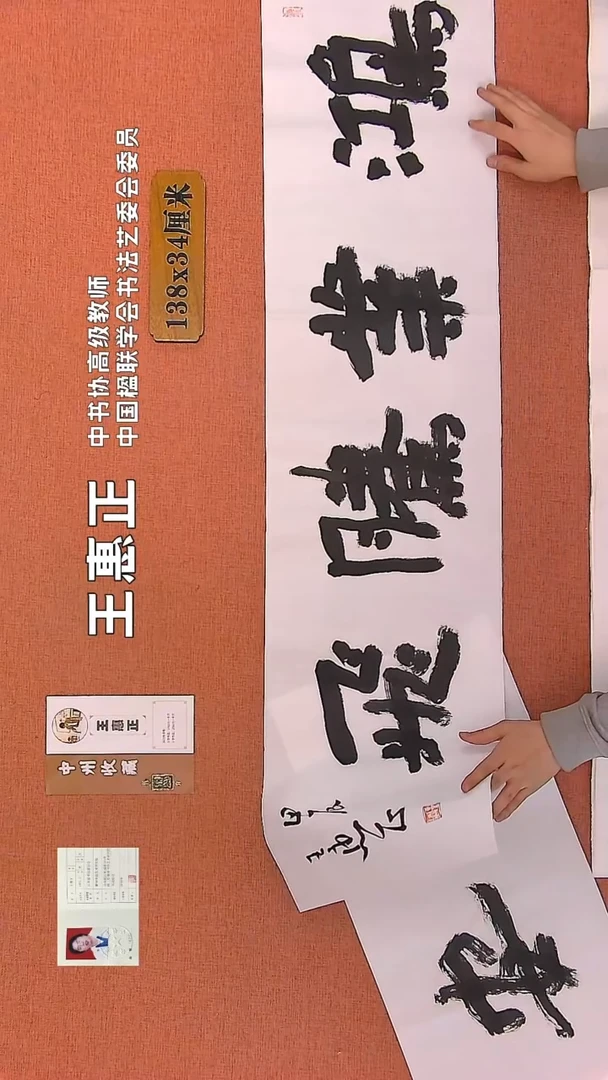 中书协高级教师
中国楹联学会书法艺委会委员
王惠正
138x34厘米
鴻業騰飛
王惠正
中州收藏